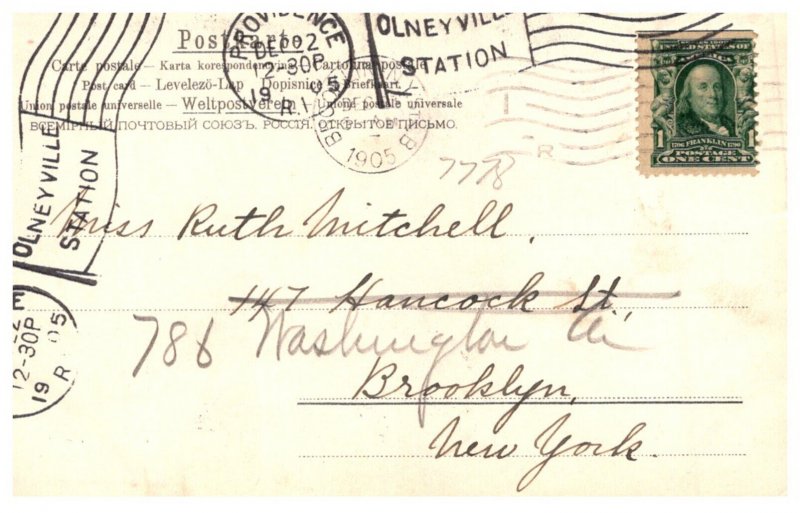 Postkarte
Carte postale — Karta korespondencyjna — Cartolina postale
Post card — Levelező-Lap — Dopisnice — Briefkaart
Union postale universelle — Weltpostverein — Unione postale universale
ВСЕМІРНЫЙ ПОЧТОВЫЙ СОЮЗЪ. РОССІЯ. ОТКРЫТОЕ ПИСЬМО.
PROVIDENCE
DEC 22
12-30P
1905
R.I.
OLNEYVILLE
STATION
1905
7778
UNITED STATES OF
AMERICA
1706 FRANKLIN 1790
1 POSTAGE 1
ONE CENT
OLNEYVILLE
STATION
12-30P
19 05
R
Miss Ruth Mitchell.
147 Hancock St.,
786 Washington Av
Brooklyn,
New York.